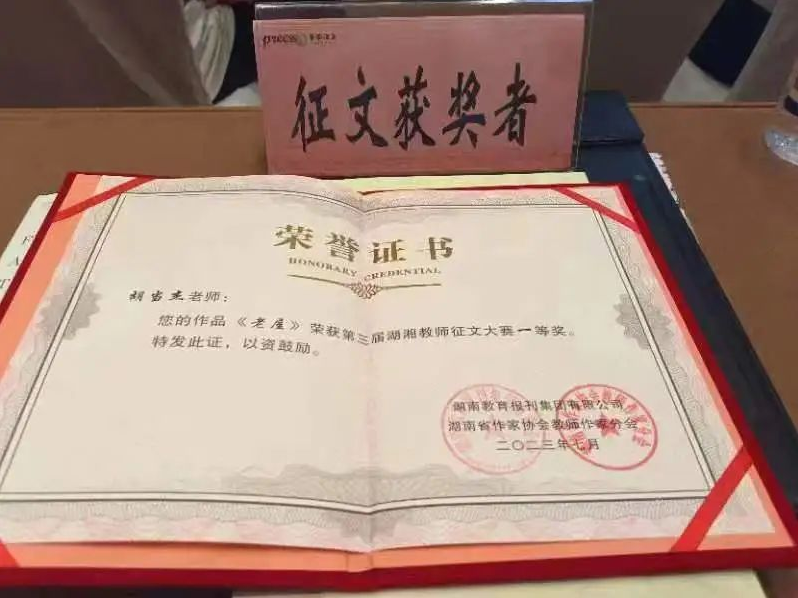 征文获奖者
荣誉证书
HONORARY CREDENTIAL
胡当杰老师：
您的作品《老屋》荣获第三届湖湘教师征文大赛一等奖。
特发此证，以资鼓励。
湖南教育报刊集团有限公司
湖南省作家协会教师作家分会
二〇二三年七月